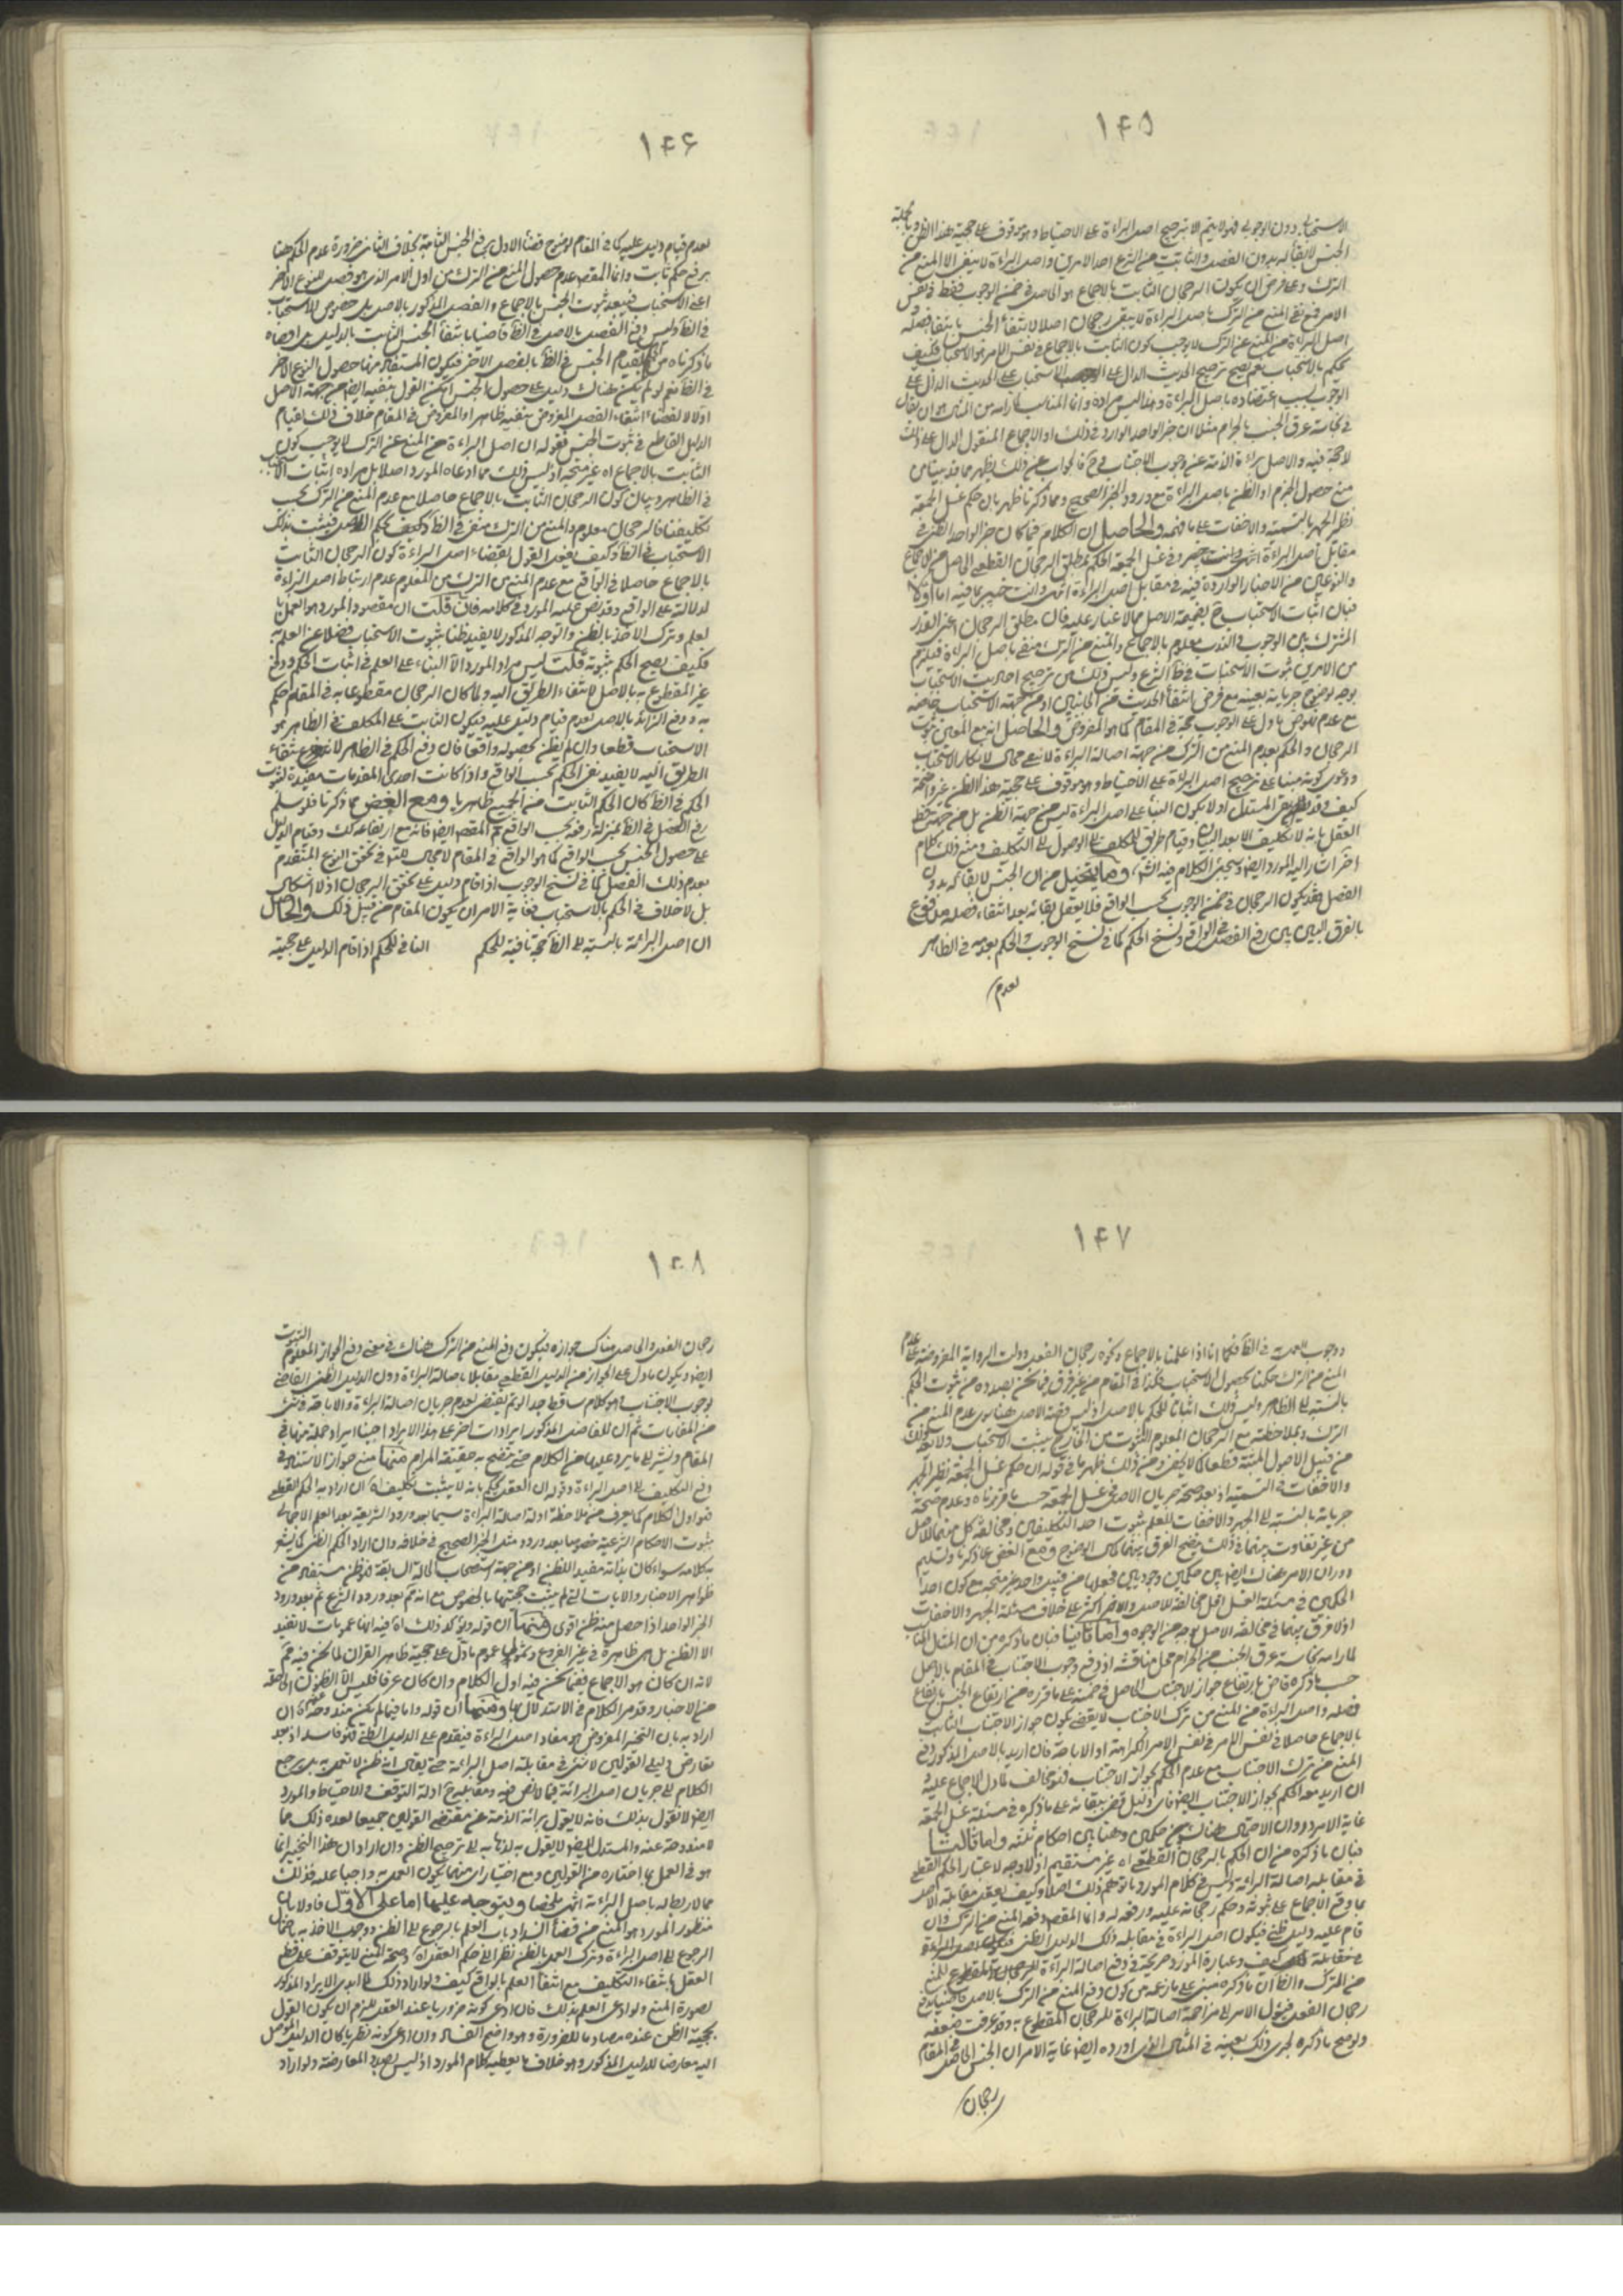 ۱۴۵
الاستحبابي دون الوجوبي فهو لا يتم الا بترجيح اصل البراءة على الاحتياط وهو موقوف على حجية هذا الظن وبالجملة
الجنس لا بقاء له بدون الفصل والثابت من الشرع احد الامرين واصل البراءة لا ينفى الا المنع من
الترك وعلى فرض ان يكون الرجحان الثابت بالاجماع هو الحاصل في ضمن الوجوب فقط في نفس
الامر فمع نفى المنع من الترك باصل البراءة لا يبقى رجحان اصلا لانتفاء الجنس بانتفاء فصله و
اصل البراءة من المنع عن الترك لا يوجب كون الثابت بالاجماع في نفس الامر هو الاستحباب فكيف
يحكم بالاستحباب نعم يصح ترجيح الحديث الدال على الاستحباب على الحديث الدال على
الوجوب بسبب اعتضاده باصل البراءة وهذا ليس مراده وانما المناسب لما رامه من المثال هو ان يقال
في نجاسة عرق الجنب بالحرام مثلا ان خبر الواحد الوارد في ذلك او الاجماع المنقول الدال على ذلك
لا حجة فيه والاصل براءة الذمة عن وجوب الاجتناب وح فالجواب عن ذلك يظهر مما قدمناه من
منع حصول الجزم او الظن باصل البراءة مع ورود الخبر الصحيح ومما ذكرنا ظهر بان حكم غسل الجمعة
نظير الجهر بالتسمية والاخفات على ما فهمه والحاصل ان الكلام فيما كان خبر الواحد الظنى في
مقابل اصل البراءة وفي غسل الجمعة الحكم بمطلق الرجحان القطعى الحاصل من الاجماع
والنوعين من الاخبار الواردة فيه في مقابل اصل البراءة انتهى وانت خبير بما فيه اما اولا
فبان اثبات الاستحباب ح بضميمة الاصل مما لا غبار عليه فان مطلق الرجحان اعنى القدر
المشترك بين الوجوب والندب معلوم بالاجماع والمنع من الترك منفى باصل البراءة فيلزم
من الامرين ثبوت الاستحباب في ظ الشرع وليس ذلك من ترجيح احاديث الاستحباب
بوجه لوضوح جريانه بعينه مع فرض انتفاء الحديث من الجانبين او من جهة الاستحباب خاصة
مع عدم نهوض ما دل على الوجوب حجة في المقام كما هو المفروض والحاصل انه مع العلم بثبوت
الرجحان والحكم بعدم المنع من الترك من جهة اصالة البراءة لا يبقى مجال لانكار الاستحباب
ودعوى كونه مبنيا على ترجيح اصل البراءة على الاحتياط وهو موقوف على حجية هذا الظن غير واضحة
كيف المستدل اولا بكون البناء على اصل البراءة ليس من جهة الظن بل من جهة حكم
العقل بانه لا تكليف الا بعد البيان وقيام طريق للمكلف الى الوصول الى التكليف ومنع ذلك كلام
اخر اشار اليه المورد ايضا وسيجىء الكلام فيه انش وما يتخيل من ان الجنس لا بقاء له بدون
الفصل فقد يكون الرجحان في ضمن الوجوب بحسب الواقع فلا يعقل بقائه بعد انتفاء فصله مدفوع
بالفرق البين بين رفع الفصل في الواقع ونسخ الحكم كما في نسخ الوجوب والحكم بعدمه في الظاهر
لعدم
۱۴۶
لعدم قيام دليل عليه كما في المقام لوضوح قضاء الاول برفع الجنس الثابت به بخلاف الثانى ضرورة عدم الحكم هنا
برفع حكم ثابت وانما المقص عدم حصول المنع من الترك من اول الامر الذى هو فصل للنوع الاخر
اعنى الاستحباب فبعد ثبوت الجنس بالاجماع والفصل المذكور بالاصل يتم خصوص الاستحباب
في الظ وليس رفع الفصل بالاصل في الظ قاضيا بانتفاء الجنس الثابت بالدليل
ما ذكرناه من قيام الجنس في الظ بالفصل الاخر فيكون المستفاد منهما حصول النوع الاخر
في الظ نعم لو لم يكن هناك دليل على حصول الجنس امكن القول بنفيه ايضا من جهة الاصل
اذ لا لقضاء انتفاء الفصل المفروض بنفيه ظاهرا والمفروض في المقام خلاف ذلك لقيام
الدليل القاطع في ثبوت الجنس فقوله ان اصل البراءة من المنع عن الترك لا يوجب كون
الثابت بالاجماع اه غير متجه اذ ليس ذلك مما ادعاه المورد اصلا بل مراده اثبات الاستحباب
في الظاهر وبيان كون الرجحان الثابت بالاجماع حاصلا مع عدم المنع من الترك بحسب
تكليفنا فالرجحان معلوم والمنع من الترك منفى في الظ بحكم الاصل فيثبت بذلك
الاستحباب في الظ وكيف يعقل القول بقضاء اصل البراءة كون الرجحان الثابت
بالاجماع حاصلا في الواقع مع عدم المنع من الترك من المعلوم عدم ارتباط اصل البراءة
لدلالة على الواقع وقد نص عليه المورد في كلامه فان قلت ان مقصود المورد هو العمل بما
يعلم وترك الاخذ بالظن والوجه المذكور لا يفيد ظنا بثبوت الاستحباب فضلا عن العلم به
فكيف يصح الحكم بثبوته قلت ليس مراد المورد الا البناء على العلم في اثبات الحكم ودفع
غير المقطوع به بالاصل لانتفاء الطريق اليه ولما كان الرجحان مقطوعا به في المقام حكم
به ودفع الزائد بالاصل لعدم قيام دليل عليه فيكون الثابت على المكلف في الظاهر هو
الاستحباب قطعا وان لم يظن بحصوله واقعا فان رفع الحكم في الظاهر انتفاء
الطريق اليه لا يفيد نفى الحكم بحسب الواقع واذا كانت احدى المقدمات مفيدة لثبوت
الحكم في الظ كان الحكم الثابت من الجميع ظاهريا ومع الغض عما ذكرنا فلو سلم
رفع الفصل في الظ بمنزلة رفعه بحسب الواقع تم المقص ايضا فانه مع ارتفاعه كك وقيام الدليل
على حصول الجنس بحسب الواقع كما هو الواقع في المقام لا مجال للتامل في تحقق النوع المتقدم
بعدم ذلك الفصل كما في نسخ الوجوب اذا قام دليل على تحقق الرجحان اذ لا اشكال
بل لا خلاف في الحكم بالاستحباب فغاية الامر ان يكون المقام من قبيل ذلك والحاصل
ان اصل البرائة بالنسبة الى الظ حجة نافية للحكم النافى للحكم اذا قام الدليل على حجيته
۱۴۷
ووجوب العمل به في الظ فكما انا اذا علمنا بالاجماع ونحوه رجحان الفعل ودلت الرواية المفروضة على عدم
المنع من الترك حكمنا بحصول الاستحباب فكذا في المقام من غير فرق فيما نحن بصدده من ثبوت الحكم
بالنسبة الى الظاهر وليس ذلك اثباتا للحكم بالاصل اذ ليس قضية الاصل هنا سوى عدم المنع من
الترك وبملاحظته مع الرجحان المعلوم الثبوت من الخارج يثبت الاستحباب ولا يعد ذلك
من قبيل الاصول المثبتة قطعا كما لا يخفى ومن ذلك ظهر ما في قوله ان حكم غسل الجمعة نظير الجهر
والاخفات في التسمية اذ بعد صحة جريان الاصل في غسل الجمعة حسب ما قررناه وعدم صحة
جريانه بالنسبة الى الجهر والاخفات للعلم بثبوت احد التكليفين ومخالفة كل منهما للاصل
من غير تفاوت بينهما في ذلك يتضح الفرق بينهما كمال الوضوح ومع الغض عما ذكرنا وتسليم
دوران الامر هناك ايضا بين حكمين وجوديين فجعلهما من قبيل واحد غير متجه مع كون احد
الحكمين في مسئلة الغسل اقل مخالفة للاصل والاخر اكثر على خلاف مسئلة الجهر والاخفات
اذ لا فرق بينهما في مخالفة الاصل بوجه من الوجوه واما ثانيا فبان ما ذكره من ان المثال المناسب
لما رامه نجاسة عرق الجنب من الحرام محل مناقشة اذ رفع وجوب الاجتناب في المقام بالاصل
حسب ما ذكره قاض بارتفاع جواز الاجتناب الحاصل في ضمنه على ما قرره من ارتفاع الجنس بارتفاع
فصله واصل البراءة من المنع من ترك الاجتناب لا يقضى بكون جواز الاجتناب الثابت
بالاجماع حاصلا في نفس الامر في ضمن الكراهة او الاباحة فان اريد بالاصل المذكور رفع
المنع من ترك الاجتناب مع عدم الحكم بجواز الاجتناب فهو مخالف لما دل الاجماع عليه و
ان اريد معه الحكم بجواز الاجتناب ايضا فاى دليل قضى ببقائه على ما ذكره في مسئلة غسل الجمعة
غاية الامر دوران الاحتمال هناك بين حكمين وهنا بين احكام ثلثة واما ثالثا
فبان ما ذكره من ان الحكم بالرجحان القطعى اه غير مستقيم اذ لا وجه لاعتبار الحكم القطعى
في مقابلة اصالة البرائة وليس في كلام المورد ما توهم ذلك اصلا وكيف يعقل مقابلة الاصل
بما وقع الاجماع على ثبوته وحكم رجحانه عليه ورفعه له وانما المقص دفعه المنع من الترك وان
قام عليه دليل ظنى فيكون اصل البراءة في مقابلة ذلك الدليل الظنى
كيف وعبارة المورد صريحة في دفع اصالة البراءة للمنع
من الترك والظ ان ما ذكره مبنى على ما زعمه من كون دفع المنع من الترك بالاصل قاضيا برفع
رجحان الفعل فيؤل الامر الى مزاحمة اصالة البراءة للرجحان المقطوع به وقد عرفت ضعفه
ولو صح ما ذكره لجرى ذلك بعينه في المثال الذى اورده ايضا غاية الامر ان الجنس الحاصل في المقام
رجحان
۱۴۸
رجحان الفعل والحاصل هناك جوازه فيكون دفع المنع من الترك هناك في معنى دفع الجواز المعلوم الثبوت
ايضا ويكون ما دل على الجواز من الدليل القطعى مقابلا باصالة البراءة دون الدليل الظنى القاضى
بوجوب الاجتناب وهو كلام ساقط جدا لو تم يقتضى بعدم جريان اصالة البراءة والاباحة في شئ
من المقامات ثم ان للفاضل المذكور ايرادات اخر على هذا الايراد احببنا ايراد جملة منها في
المقام ونشير الى ما يرد عليها من الكلام حتى يتضح به حقيقة المرام منها منع جواز الاستناد في
رفع التكليف الى اصل البراءة وقوله ان العقل يحكم بانه لا يثبت تكليف اه ان اراد به الحكم القطعى
فهو اول الكلام كما يعرف من ملاحظة ادلة اصالة البراءة سيما بعد ورود الشريعة بعد العلم الاجمالى
بثبوت الاحكام الشرعية خصوصا بعد ورود مثل الخبر الصحيح في خلافه وان اراد الحكم الظنى كما يشعر
به كلامه سواء كان بذاته مفيدا للظن او من جهة استصحاب الحالة السابقة فهو ظن مستفاد من
ظواهر الاخبار والايات التى لم يثبت حجيتها بالخصوص مع انه ثم بعد ورود الشرع ثم بعد ورود
الخبر الواحد اذا حصل منه ظن اقوى ومنها ان قوله ويؤكد ذلك اه فيه انها عمومات لا تفيد
الا الظن بل هى ظاهرة في غير الفروع وشمول عموم ما دل على حجية ظاهر القران لما نحن فيه ثم
لانه ان كان هو الاجماع ففيما نحن فيه اول الكلام وان كان غيره فليس الا الظنون الحاصلة
من الاخبار وقد مر الكلام في الاستدلال بها ومنها ان قوله واما فيما لم يكن مندوحة عنه اه ان
اراد به بان التخيير المفروض هو مفاد اصل البراءة فيقدم على الدليل الظنى فهو فاسد اذ بعد
تعارض دليلى القولين لا شئ في مقابلة اصل البرائة حتى يقال انه ظن لا نعمل به بل يرجع
الكلام الى جريان اصل البرائة فيما لا نص فيه ومقابله ح ادلة التوقف والاحتياط والمورد
ايضا لا يقول بذلك فانه لا يقول ببرائة الذمة عن مقتضى القولين جميعا لعده ذلك مما
لا مندوحة عنه والمستدل ايضا لا يقول به لذهابه الى ترجيح الظن وان اراد ان هذا التخيير انما
هو في العمل بما اختاره من القولين ومع اختيار اى منهما يكون العمل به واجبا عليه فذلك
مما لا ربط له باصل البراءة انتهى ملخصا ويتوجه عليها اما على الاول فاولا بان
منظور المورد هو المنع من قضاء انسداد باب العلم بالرجوع الى الظن ووجوب الاخذ به باحتمال
الرجوع الى اصل البراءة وترك العمل بالظن نظرا الى حكم العقل اه وصحة المنع لا يتوقف على قطع
العقل بانتفاء التكليف مع انتفاء العلم بالواقع كيف ولو اراد ذلك لما ابدى الايراد المذكور
بصورة المنع ولو ادعى العلم بذلك فان ادعى كونه ضروريا عند العقل للزم ان يكون القول
بحجية الظن عنده مصادما للضرورة وهو واضح الفساد وان ادعى كونه نظريا كان الدليل الموصل
اليه معارضا للدليل المذكور وهو خلاف ما يعطيه كلام المورد اذ ليس بصدد المعارضة ولو اراد